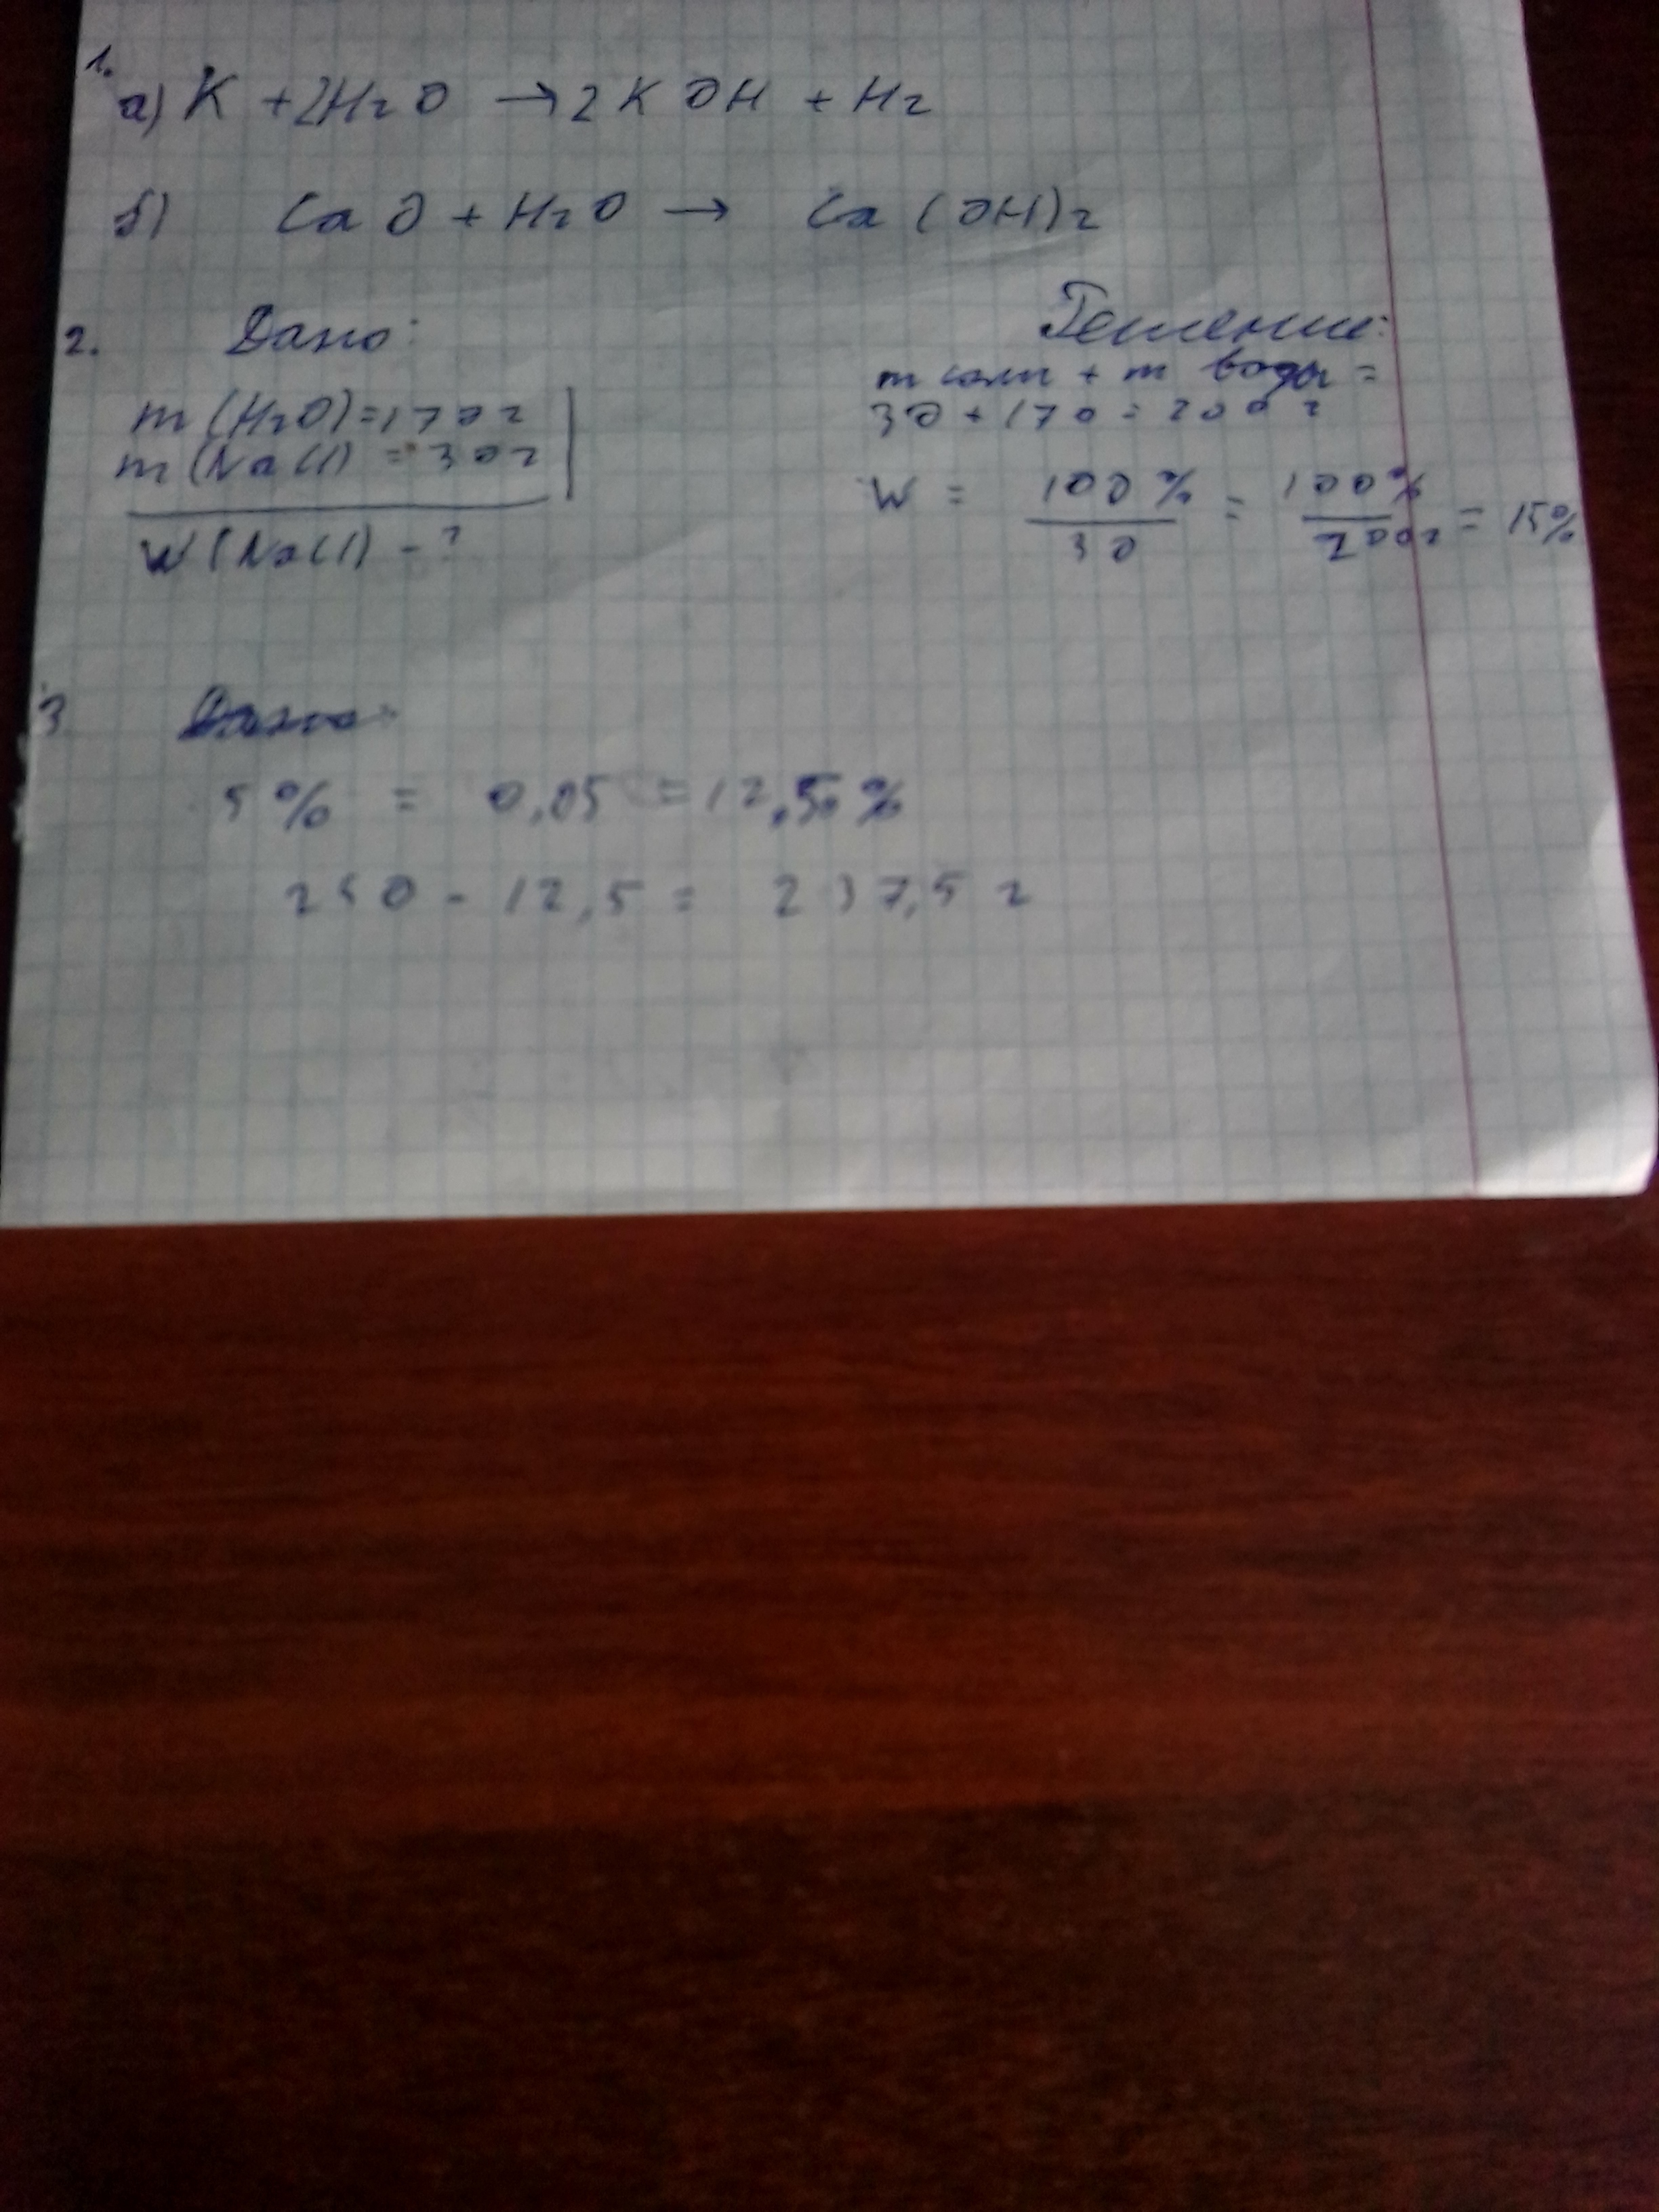 1.
а) K + 2H2O → 2KOH + H2
б) CaO + H2O → Ca(OH)2
2. Дано:
m(H2O) = 170г
m(NaCl) = 30г
W(NaCl) - ?
Решение:
m соли + m воды =
30 + 170 = 200г
W = 100% / 30 = 100% / 200г = 15%
3
5% = 0,05 = 12,5%
250 - 12,5 = 237,5 г